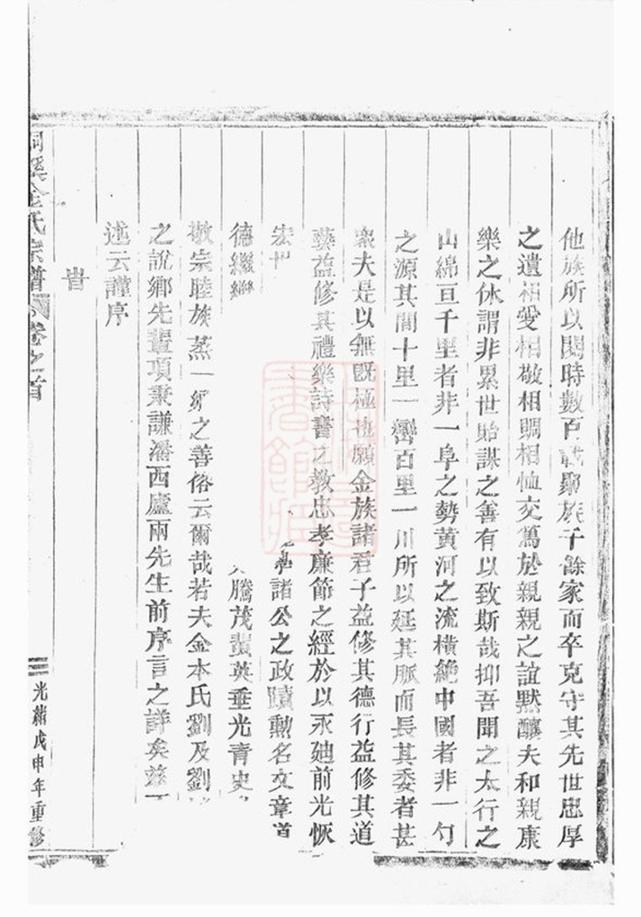 他族所以閱時數百載聚族千餘家而卒克守其先世忠厚
之遺相愛相敬相賙相恤交篤於親親之誼默釀夫和親康
樂之休謂非累世貽謀之善有以致斯哉抑吾聞之太行之
山綿亘千里者非一阜之勢黃河之流橫絶中國者非一勺
之源其間十里一巒百里一川所以延其脈而長其委者甚
衆夫是以無旣極也願金族諸君子益修其德行益修其道
藝益修其禮樂詩書之教忠孝廉節之經於以永廸前光恢
宏世 諸公之政蹟勳名文章道
德繼繼 騰茂蜚英垂光青史
敬宗睦族蒸一鄉之善俗云爾哉若夫金本氏劉及劉
之說鄉先輩項秉謙潘西廬兩先生前序言之詳矣茲
述云謹序
旹
桐溪金氏宗譜 卷之首
光緒戊申年重修